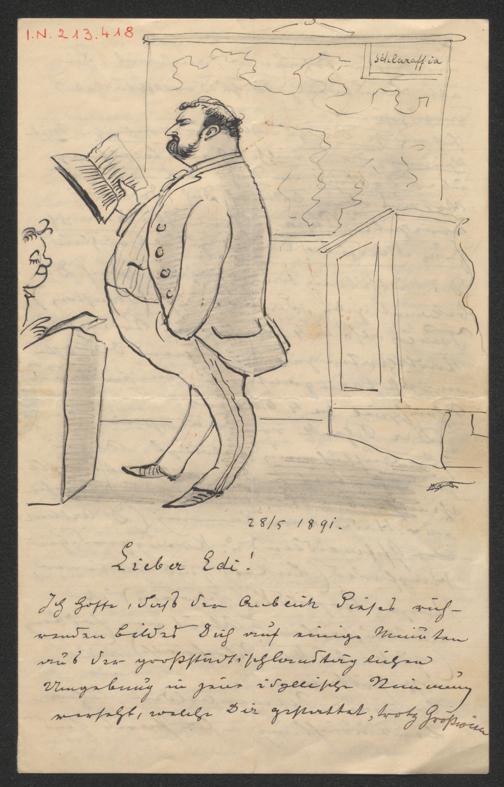 I.N. 213.418
Schlaraffia
28/5 1891.
Lieber Edi!
Ich hoffe, dass der Anblick dieses rüh-
renden Bildes Dich auf einige Minuten
aus der großstädtisch landtäglichen
Umgebung in jene idyllische Stimmung
versetzt, welche Dir gestattet, trotz